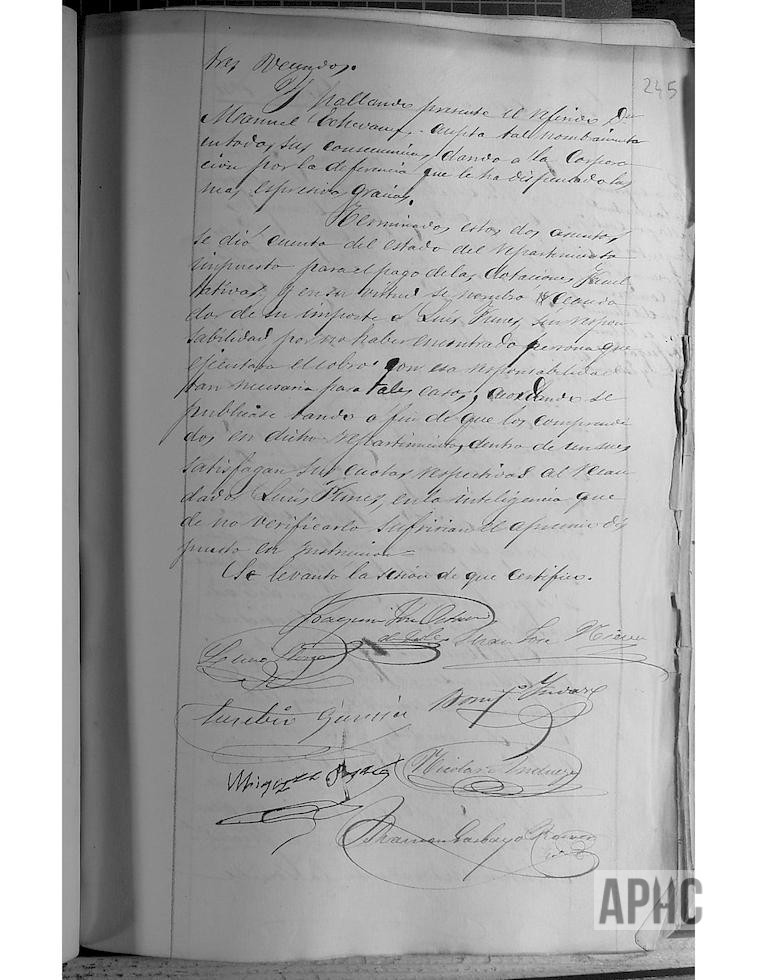 245
tres segundos.
Y hallando presente el referido Dn
Manuel Echevarri, acepta tal nombramiento
en todas sus consecuencias, dando a la Corpora
ción por la deferencia que le ha dispensado las
mas espresivas gracias.
Terminados estos dos asuntos
se dió cuenta del estado del repartimiento
impuesto para el pago de las dotaciones facul
tativas. Y en su virtud se nombró recauda
dor de su importe a Luis Funes, sin respon
sabilidad por no haber encontrado persona que
ejecutara el cobro con esa responsabilidad
tan necesaria para tales casos, acordando se
publicase bando a fin de que los comprendi
dos en dicho repartimiento, dentro de un mes
satisfagan sus cuotas respectivas al recau
dador Luis Funes, en la inteligencia que
de no verificarlo sufririan el apremio dis
puesto en instruccion =
Se levantó la sesion de que certifico.
Joaquin José
Juan José
Eusebio Garcia
Miguel
Nicolas
Ramon Garbayo
APHC